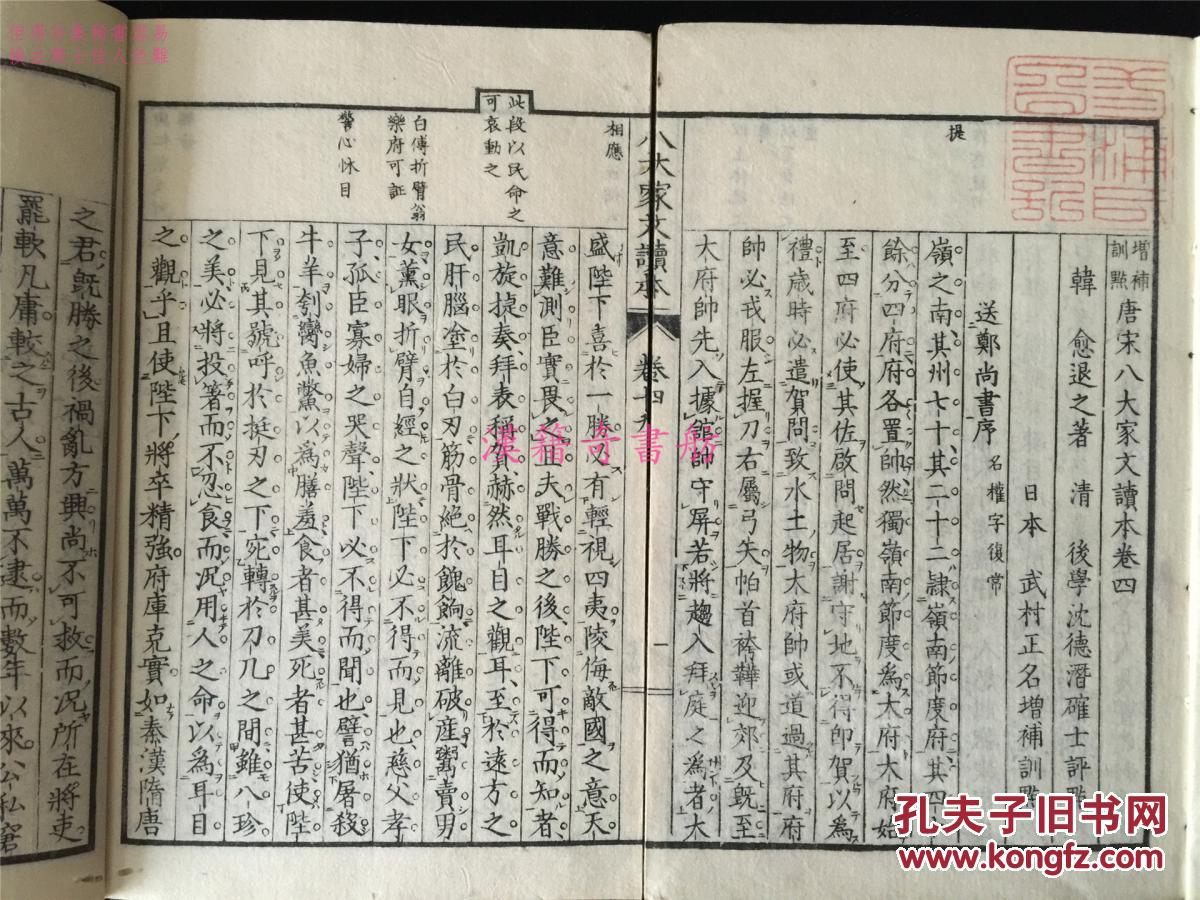 增補
訓點
唐宋八大家文讀本卷四
韓　愈退之著　清　後學沈德潛確士評點
日本　武村正名增補訓點
送鄭尚書序
名權字復常
提
嶺之南其州七十其二十二隸嶺南節度府其四十
餘分四府府各置帥然獨嶺南節度爲大府大府始
至四府必使其佐啟問起居謝守地不得卽賀以爲
禮歲時必遣賀問致水土物大府帥或道過其府府
帥必戎服左握刀右屬弓矢帕首袴鞾迎郊及旣至
大府帥先入據館帥守屏若將趨入拜庭之爲者大
八大家文讀本
卷四
一
相應
盛陛下喜於一勝必有輕視四夷陵侮敵國之意天
意難測臣實畏之且夫戰勝之後陛下可得而知者
此段以民命之
可哀動之
凱旋捷奏拜表稱賀赫然耳目之觀耳至於遠方之
民肝腦塗於白刃筋骨絕於餽餉流離破産鬻賣男
白傅折臂翁
樂府可証
女薰眼折臂自經之狀陛下必不得而見也慈父孝
警心怵目
子孤臣寡婦之哭聲陛下必不得而聞也譬猶屠殺
牛羊刳臠魚鱉以爲膳羞食者甚美死者甚苦使陛
下見其號呼於挺刃之下宛轉於刀几之間雖八珍
之美必將投箸而不忍食而況用人之命以爲耳目
之觀乎且使陛下將卒精強府庫充實如秦漢隋唐
之君旣勝之後禍亂方興尚不可救而況所在將吏
罷軟凡庸較之古人萬萬不逮而數年以來公私窘
漢籍奇書舫
孔夫子旧书网
www.kongfz.com